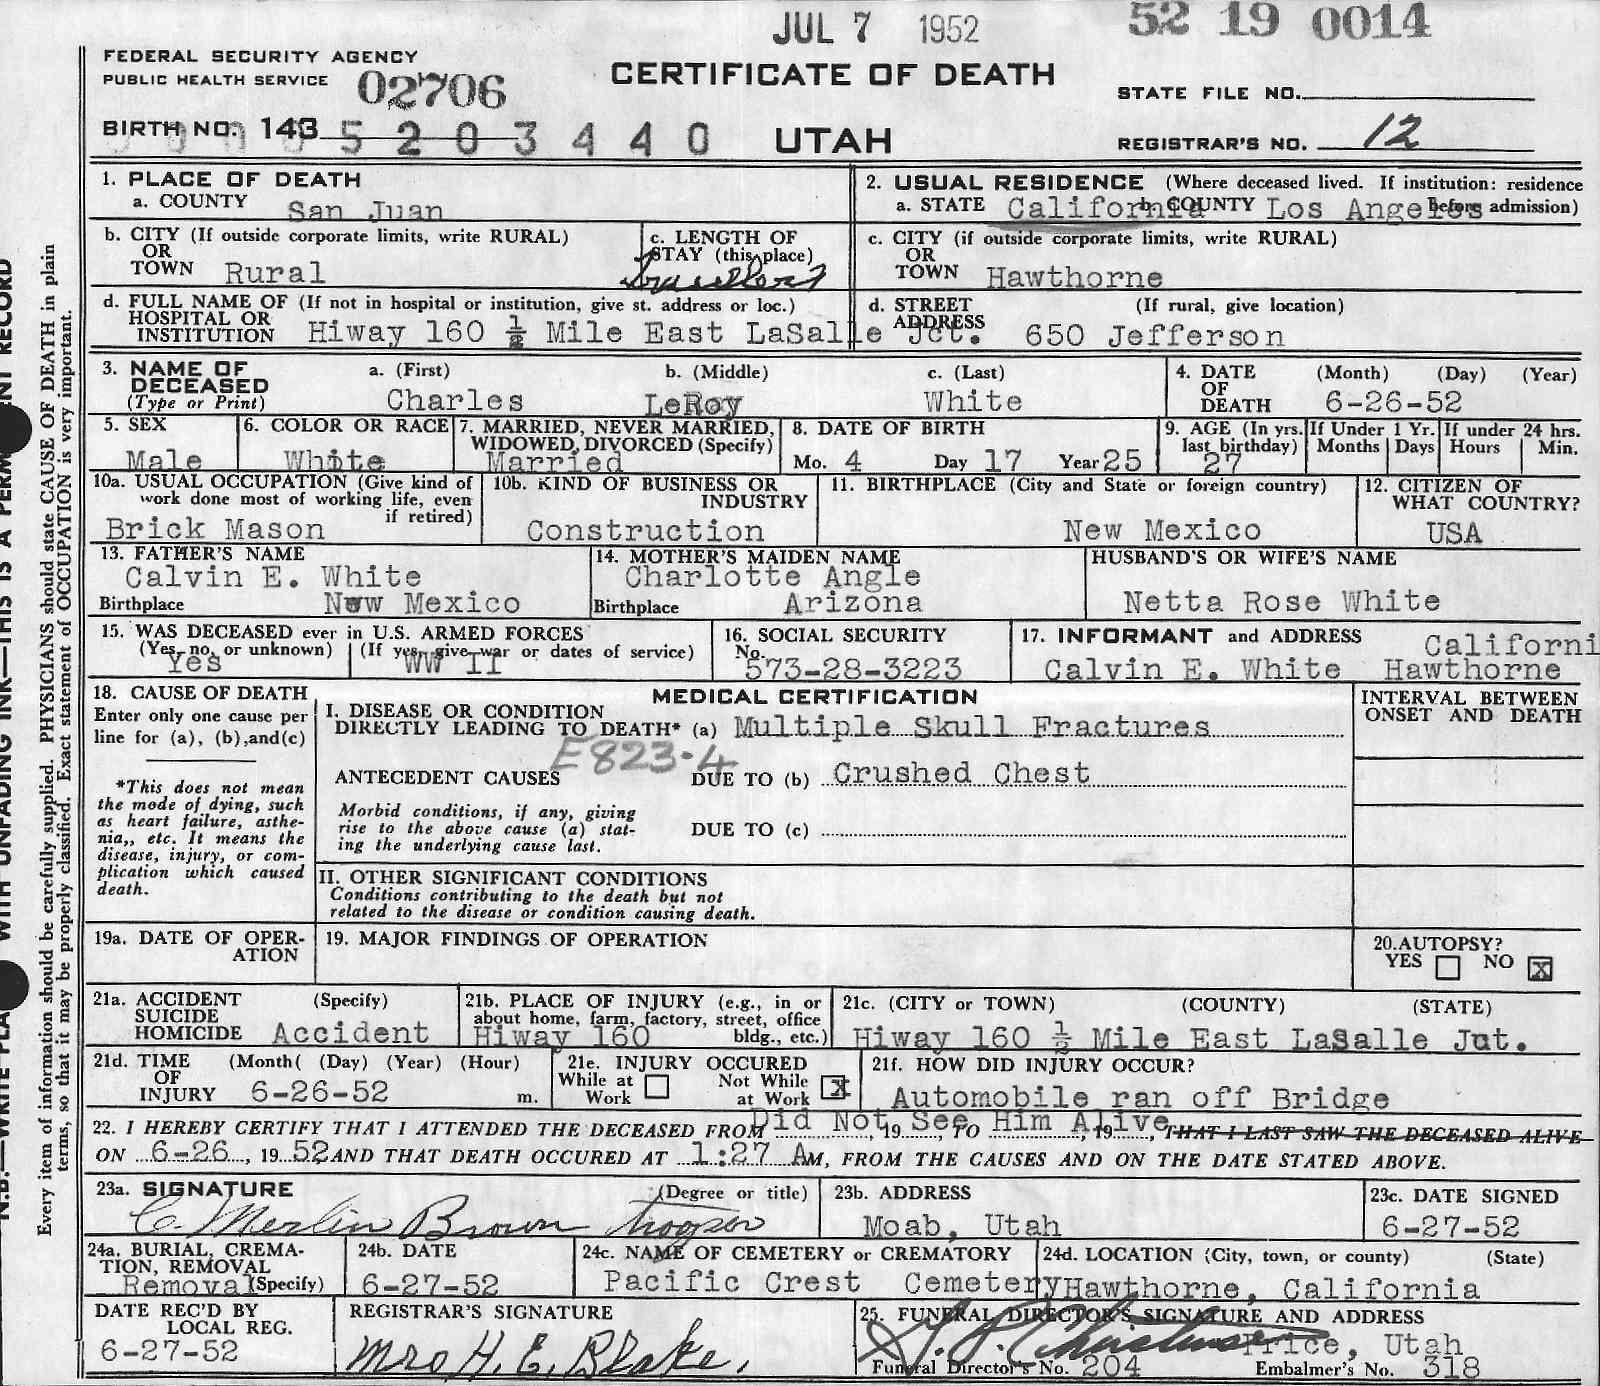 JUL 7 1952
52 19 0014
FEDERAL SECURITY AGENCY
PUBLIC HEALTH SERVICE 02706
CERTIFICATE OF DEATH
STATE FILE NO.
BIRTH NO. 143
5 2 0 3 4 4 0
UTAH
REGISTRAR'S NO. 12
1. PLACE OF DEATH
a. COUNTY San Juan
2. USUAL RESIDENCE (Where deceased lived. If institution: residence before admission)
a. STATE California b. COUNTY Los Angeles
b. CITY (If outside corporate limits, write RURAL)
OR
TOWN Rural
c. LENGTH OF
STAY (this place)
c. CITY (if outside corporate limits, write RURAL)
OR
TOWN Hawthorne
d. FULL NAME OF (If not in hospital or institution, give st. address or loc.)
HOSPITAL OR
INSTITUTION Hiway 160 ½ Mile East LaSalle Jct.
d. STREET (If rural, give location)
ADDRESS 650 Jefferson
3. NAME OF DECEASED
(Type or Print)
a. (First) b. (Middle) c. (Last)
Charles LeRoy White
4. DATE OF DEATH (Month) (Day) (Year)
6-26-52
5. SEX
Male
6. COLOR OR RACE
White
7. MARRIED, NEVER MARRIED,
WIDOWED, DIVORCED (Specify)
Married
8. DATE OF BIRTH
Mo. 4 Day 17 Year 25
9. AGE (In yrs. last birthday)
27
If Under 1 Yr. Months Days
If under 24 hrs. Hours Min.
10a. USUAL OCCUPATION (Give kind of
work done most of working life, even
if retired)
Brick Mason
10b. KIND OF BUSINESS OR
INDUSTRY
Construction
11. BIRTHPLACE (City and State or foreign country)
New Mexico
12. CITIZEN OF
WHAT COUNTRY?
USA
13. FATHER'S NAME
Calvin E. White
Birthplace New Mexico
14. MOTHER'S MAIDEN NAME
Charlotte Angle
Birthplace Arizona
HUSBAND'S OR WIFE'S NAME
Netta Rose White
15. WAS DECEASED ever in U.S. ARMED FORCES
(Yes, no, or unknown) (If yes, give war or dates of service)
Yes WW II
16. SOCIAL SECURITY
No.
573-28-3223
17. INFORMANT and ADDRESS Californi
Calvin E. White Hawthorne
18. CAUSE OF DEATH
Enter only one cause per
line for (a), (b), and (c)
*This does not mean
the mode of dying, such
as heart failure, asthe-
nia,, etc. It means the
disease, injury, or com-
plication which caused
death.
MEDICAL CERTIFICATION
INTERVAL BETWEEN
ONSET AND DEATH
I. DISEASE OR CONDITION
DIRECTLY LEADING TO DEATH* (a) Multiple Skull Fractures
E823.4
ANTECEDENT CAUSES DUE TO (b) Crushed Chest
Morbid conditions, if any, giving
rise to the above cause (a) stat-
ing the underlying cause last.
DUE TO (c)
II. OTHER SIGNIFICANT CONDITIONS
Conditions contributing to the death but not
related to the disease or condition causing death.
19a. DATE OF OPER-
ATION
19. MAJOR FINDINGS OF OPERATION
20. AUTOPSY?
YES NO X
21a. ACCIDENT (Specify)
SUICIDE
HOMICIDE Accident
21b. PLACE OF INJURY (e.g., in or
about home, farm, factory, street, office
bldg., etc.)
Hiway 160
21c. (CITY or TOWN) (COUNTY) (STATE)
Hiway 160 ½ Mile East LaSalle Jut.
21d. TIME (Month( (Day) (Year) (Hour)
OF
INJURY 6-26-52 m.
21e. INJURY OCCURED
While at Work Not While at Work X
21f. HOW DID INJURY OCCUR?
Automobile ran off Bridge
22. I HEREBY CERTIFY THAT I ATTENDED THE DECEASED FROM Did Not, 19 See, TO Him Alive, 19, THAT I LAST SAW THE DECEASED ALIVE
ON 6-26, 19 52 AND THAT DEATH OCCURED AT 1:27 AM, FROM THE CAUSES AND ON THE DATE STATED ABOVE.
23a. SIGNATURE (Degree or title)
C. Merlin Brown trooper
23b. ADDRESS
Moab, Utah
23c. DATE SIGNED
6-27-52
24a. BURIAL, CREMA-
TION, REMOVAL
Removal (Specify)
24b. DATE
6-27-52
24c. NAME OF CEMETERY or CREMATORY
Pacific Crest Cemetery
24d. LOCATION (City, town, or county) (State)
Hawthorne, California
DATE REC'D BY
LOCAL REG.
6-27-52
REGISTRAR'S SIGNATURE
Mrs H. E. Blake.
25. FUNERAL DIRECTOR'S SIGNATURE AND ADDRESS
Price, Utah
Funeral Director's No. 204 Embalmer's No. 318
Every item of information should be carefully supplied. PHYSICIANS should state CAUSE OF DEATH in plain
terms, so that it may be properly classified. Exact statement of OCCUPATION is very important.
WITH UNFADING INK—THIS IS A